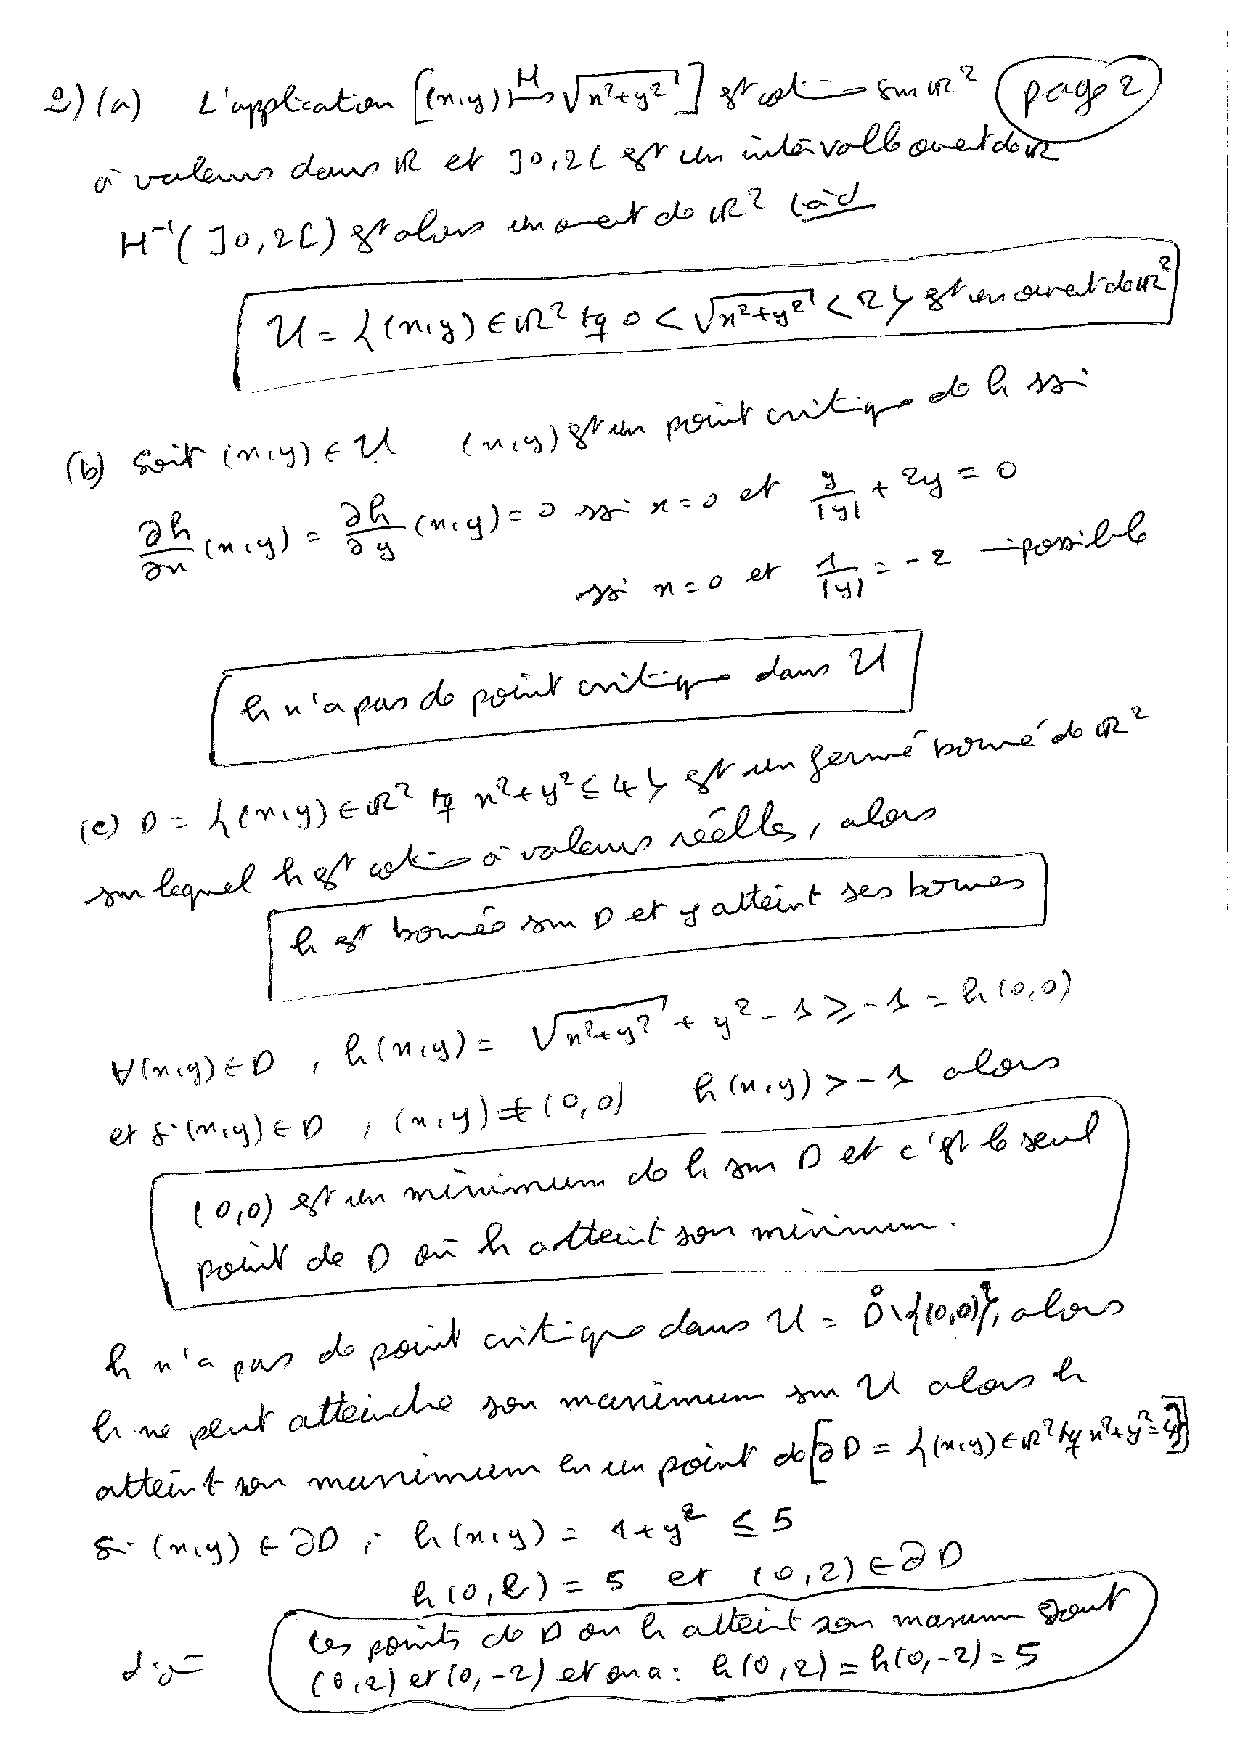 2) (a) L'application [(x,y) H↦ √x²+y²] est cont— sur ℝ² page 2
à valeurs dans ℝ et ]0,2[ est un intervalle ouvert de ℝ
H⁻¹( ]0,2[ ) est alors un ouvert de ℝ² càd
U = {(x,y) ∈ ℝ² tq 0 < √x²+y² < 2} est un ouvert de ℝ²
(b) Soit (x,y) ∈ U (x,y) est un point critique de h ssi
∂h/∂x (x,y) = ∂h/∂y (x,y) = 0 ssi x = 0 et y/|y| + 2y = 0
ssi x = 0 et 1/|y| = -2 impossible
h n'a pas de point critique dans U
(c) D = {(x,y) ∈ ℝ² tq x²+y² ≤ 4} est un fermé borné de ℝ²
sur lequel h est cont— à valeurs réélles, alors
h est bornée sur D et y atteint ses bornes
∀(x,y) ∈ D , h(x,y) = √x²+y² + y² - 1 ≥ -1 = h(0,0)
et si (x,y) ∈ D , (x,y) ≠ (0,0) h(x,y) > -1 alors
(0,0) est un minimum de h sur D et c'est le seul
point de D où h atteint son minimum.
h n'a pas de point critique dans U = D̊\{(0,0)}, alors
h ne peut atteindre son maximum sur U alors h
atteint son maximum en un point de [∂D = {(x,y) ∈ ℝ² tq x²+y²=4}]
Si (x,y) ∈ ∂D , h(x,y) = 1+y² ≤ 5
h(0,2) = 5 et (0,2) ∈ ∂D
d'où Les points de D où h atteint son maximum sont
(0,2) et (0,-2) et on a : h(0,2) = h(0,-2) = 5